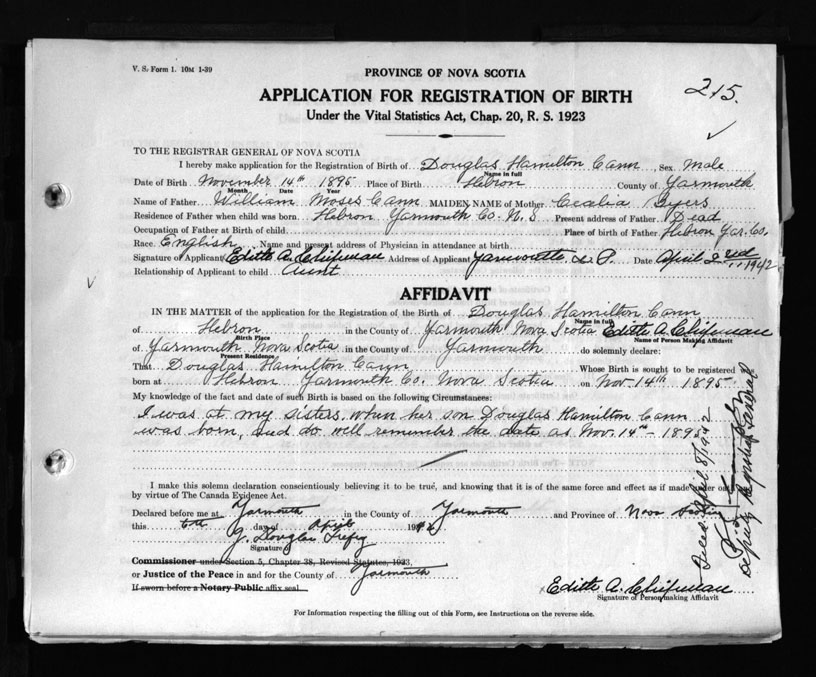 V. S. Form 1. 10M 1-39
215.
PROVINCE OF NOVA SCOTIA
APPLICATION FOR REGISTRATION OF BIRTH
Under the Vital Statistics Act, Chap. 20, R. S. 1923
TO THE REGISTRAR GENERAL OF NOVA SCOTIA
I hereby make application for the Registration of Birth of Douglas Hamilton Cann, Sex Male
Name in full
Date of Birth November 14th 1895 Place of Birth Hebron County of Yarmouth
Month Date Year
Name of Father William Moses Cann MAIDEN NAME of Mother Cecelia Byers
Residence of Father when child was born Hebron Yarmouth Co. N. S Present address of Father Dead
Occupation of Father at Birth of child Place of birth of Father Hebron Yar. Co.
Race English Name and present address of Physician in attendance at birth
Signature of Applicant Edith A. Chipman Address of Applicant Yarmouth Date April 2nd 1942
Relationship of Applicant to child Aunt
AFFIDAVIT
IN THE MATTER of the application for the Registration of the Birth of Douglas Hamilton Cann
Name in full
of Hebron in the County of Yarmouth Nova Scotia Edith A. Chipman
Birth Place Name of Person Making Affidavit
of Yarmouth Nova Scotia in the County of Yarmouth do solemnly declare:
Present Residence
That Douglas Hamilton Cann Whose Birth is sought to be registered
born at Hebron Yarmouth Co. Nova Scotia on Nov. 14th 1895
My knowledge of the fact and date of such Birth is based on the following Circumstances:
I was at my sisters when her son Douglas Hamilton Cann
was born, and do well remember the date as Nov. 14th - 1895
I make this solemn declaration conscientiously believing it to be true, and knowing that it is of the same force and effect as if made under oath
by virtue of The Canada Evidence Act.
Declared before me at Yarmouth in the County of Yarmouth and Province of Nova Scotia
this 6th day of April 1942
J. Douglas
Signature of
Commissioner under Section 5, Chapter 38, Revised Statutes, 1923,
or Justice of the Peace in and for the County of Yarmouth
If sworn before a Notary Public affix seal.
Edith A. Chipman
Signature of Person making Affidavit
For Information respecting the filling out of this Form, see Instructions on the reverse side.
Filed April 8/1942
Deputy Registrar General